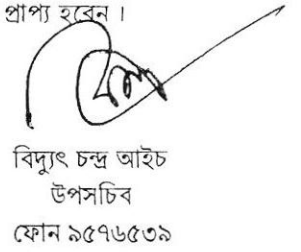 প্রাপ্য হবেন ।
বিদ্যুৎ চন্দ্র আইচ
উপসচিব
ফোন ৯৫৭৬৫৩৯